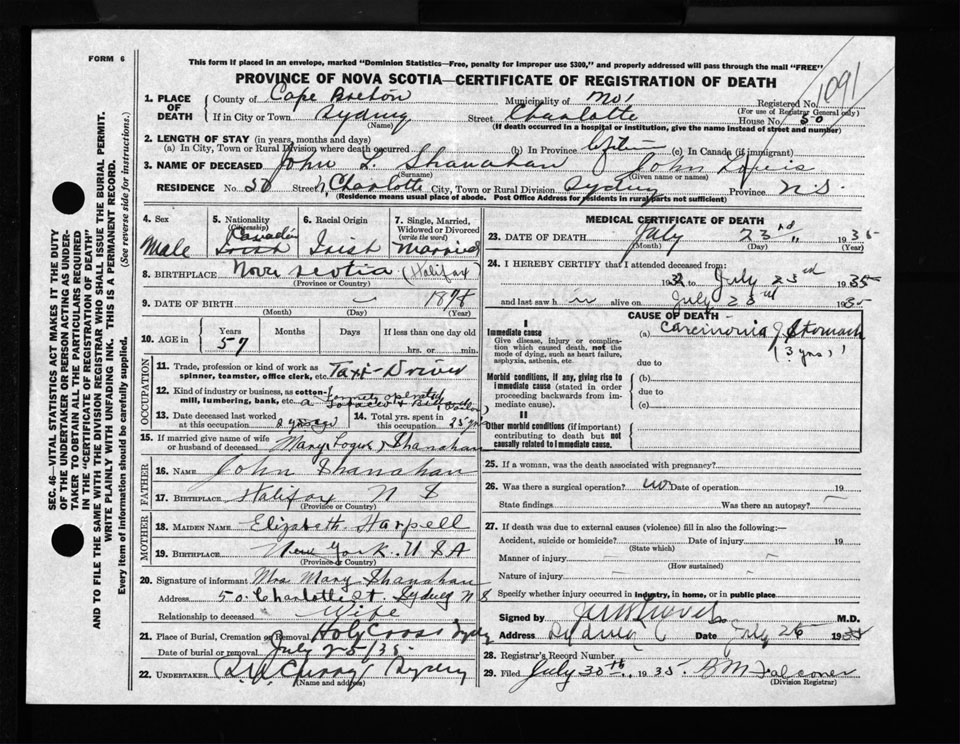 FORM 6
This form if placed in an envelope, marked "Dominion Statistics—Free, penalty for improper use $300," and properly addressed will pass through the mail "FREE"
PROVINCE OF NOVA SCOTIA—CERTIFICATE OF REGISTRATION OF DEATH
1091
1. PLACE OF DEATH
County of Cape Breton Municipality of Registered No.
(For use of Registrar General only)
If in City or Town Sydney Street Charlotte House No. 50
(Name) (If death occurred in a hospital or institution, give the name instead of street and number)
2. LENGTH OF STAY (in years, months and days)
(a) In City, Town or Rural Division where death occurred (b) In Province Lifetime (c) In Canada (if immigrant)
3. NAME OF DECEASED John L. Shanahan John Louis
(Surname) (Given name or names)
RESIDENCE No. 50 Street Charlotte City, Town or Rural Division Sydney Province N.S.
(Residence means usual place of abode. Post Office Address for residents in rural parts not sufficient)
SEC. 46—VITAL STATISTICS ACT MAKES IT THE DUTY
OF THE UNDERTAKER OR PERSON ACTING AS UNDER-
TAKER TO OBTAIN ALL THE PARTICULARS REQUIRED
IN THE "CERTIFICATE OF REGISTRATION OF DEATH"
AND TO FILE THE SAME WITH THE DIVISION REGISTRAR WHO SHALL ISSUE THE BURIAL PERMIT.
WRITE PLAINLY WITH UNFADING INK. THIS IS A PERMANENT RECORD.
Every item of information should be carefully supplied. (See reverse side for instructions.)
4. Sex
Male
5. Nationality
(Citizenship)
Canadian
6. Racial Origin
Irish
7. Single, Married,
Widowed or Divorced
(write the word)
Married
8. BIRTHPLACE Nova Scotia (Halifax)
(Province or Country)
9. DATE OF BIRTH 1878
(Month) (Day) (Year)
10. AGE in
Years Months Days If less than one day old
57 hrs. or min.
OCCUPATION
11. Trade, profession or kind of work as
spinner, teamster, office clerk, etc. Taxi-Driver
12. Kind of industry or business, as cotton-
mill, lumbering, bank, etc. formerly operated
a Tobacco & Billiard
13. Date deceased last worked
at this occupation
14. Total yrs. spent in
this occupation 25 yrs
15. If married give name of wife
or husband of deceased Mary Shanahan
FATHER
16. NAME John Shanahan
17. BIRTHPLACE Halifax N S
(Province or Country)
MOTHER
18. MAIDEN NAME Elizabeth Harpell
19. BIRTHPLACE New York. U S A
(Province or Country)
20. Signature of informant Mrs. Mary Shanahan
Address 50 Charlotte St. Sydney N S
Relationship to deceased Wife
21. Place of Burial, Cremation or Removal Holy Cross Sydney
Date of burial or removal July 25/35
22. UNDERTAKER Curry Sydney
(Name and address)
MEDICAL CERTIFICATE OF DEATH
23. DATE OF DEATH July 23rd 1935
(Month) (Day) (Year)
24. I HEREBY CERTIFY that I attended deceased from:
1932 to July 23rd 1935
and last saw him alive on July 23rd 1935
CAUSE OF DEATH
I
Immediate cause
Give disease, injury or complication which caused death, not the mode of dying, such as heart failure, asphyxia, asthenia, etc.
(a) Carcinoma of Stomach
(3 yrs)
due to
Morbid conditions, if any, giving rise to immediate cause (stated in order proceeding backwards from immediate cause).
(b)
due to
(c)
II
Other morbid conditions (if important) contributing to death but not causally related to immediate cause.
25. If a woman, was the death associated with pregnancy?
26. Was there a surgical operation? no Date of operation 19
State findings Was there an autopsy?
27. If death was due to external causes (violence) fill in also the following:—
Accident, suicide or homicide? Date of injury 19
(State which)
Manner of injury
(How sustained)
Nature of injury
Specify whether injury occurred in industry, in home, or in public place
Signed by M.D.
Address Sydney Date July 25 1935
28. Registrar's Record Number
29. Filed July 30th 1935 Falconer
(Division Registrar)